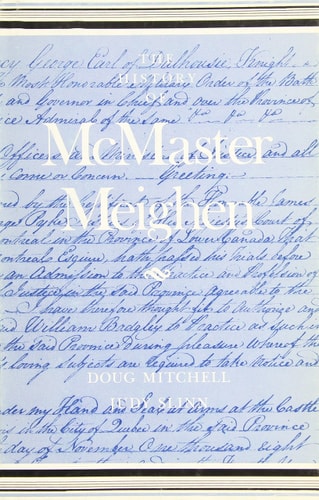 cy George Earl of Dalhousie, Knight
THE
Most Honorable Military Order of the Bath
HISTORY
and Governor in Chief and over the Province of
OF
ice Admiral of the Same &a &a &a
McMaster
come or Concern. Greeting:
Meighen
James
Court of
ontreal in the Province of Lower Canada, That
ontreal Esquire, hath passed his Trials before
an Admission to the Practice and Profession of
Justice in the said Province agreeable to the
have therefore thought fit to Authorize and
said William Badgley to Practice as such in
the said Province During pleasure Whereof the
loving Subjects are required to take Notice and
DOUG MITCHELL
der my Hand and Seal at Arms at the Castle
JUDY SLINN
in the City of Quebec in the said Province
day of November One thousand eight